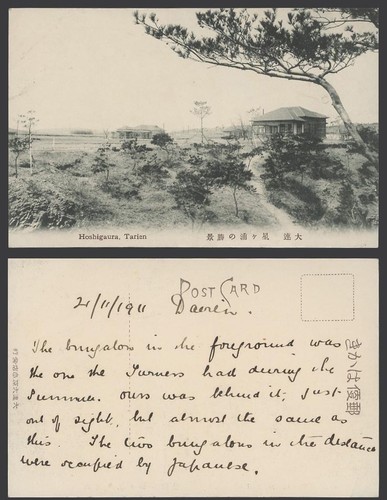 Hoshigaura, Tarien
大連 星ヶ浦の勝景
POST CARD
21/11/1911 Daeren.
きかは便郵
The bungalow in the foreground was
the one the Turners had during the
Summer. Ours was behind it, just
out of sight, but almost the same as
this. The two bungalows in the distance
were occupied by Japanese.